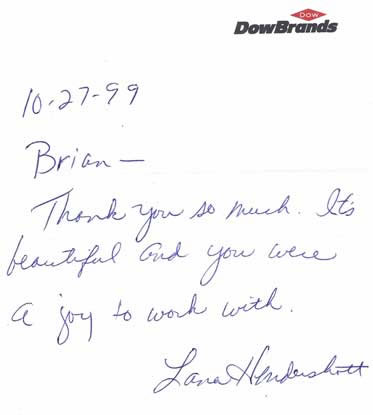 DOW
DowBrands
10-27-99
Brian—
Thank you so much. It's
beautiful and you were
a joy to work with.
Lana Hendershott